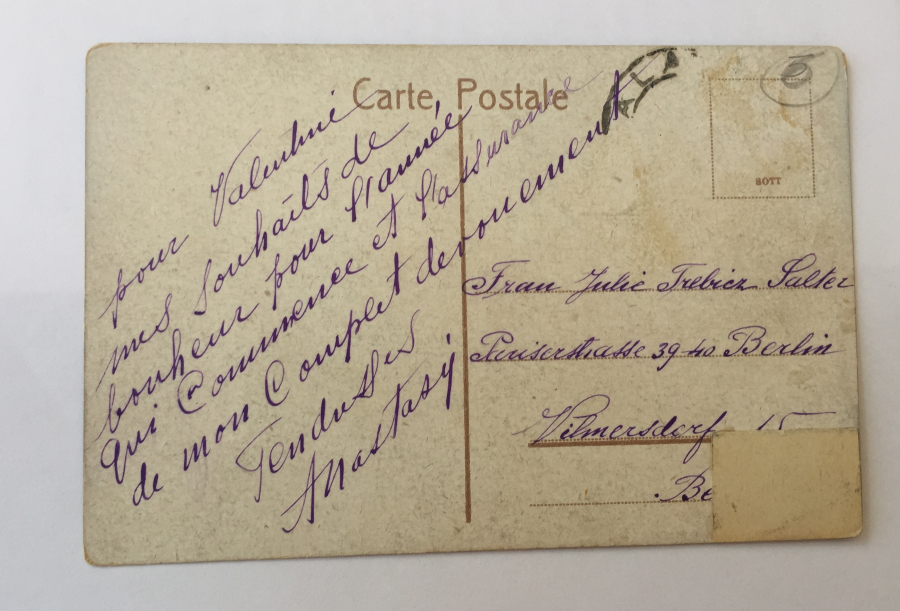 Carte Postale
pour Valentine
mes souhaits de
bonheur pour l'année
qui Commence et l'assurance
de mon Complet devouement
Tendusses
Anastasij
BOTT
6
Frau Julie Trebicz Salter
Pariserstrasse 39-40 Berlin
Vilmersdorf 15
Be